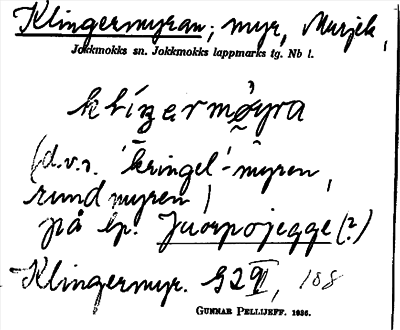 Klingermyran; myr, Murjek,
Jokkmokks sn. Jokkmokks lappmarks tg. Nb l.
klíŋermøyra
(d.v.s. 'kringel'-myren,
rundmyren)
på lp. Juorpojegge (?)
Klingermyr. G291, 108
GUNNAR PELLIJEFF. 1936.